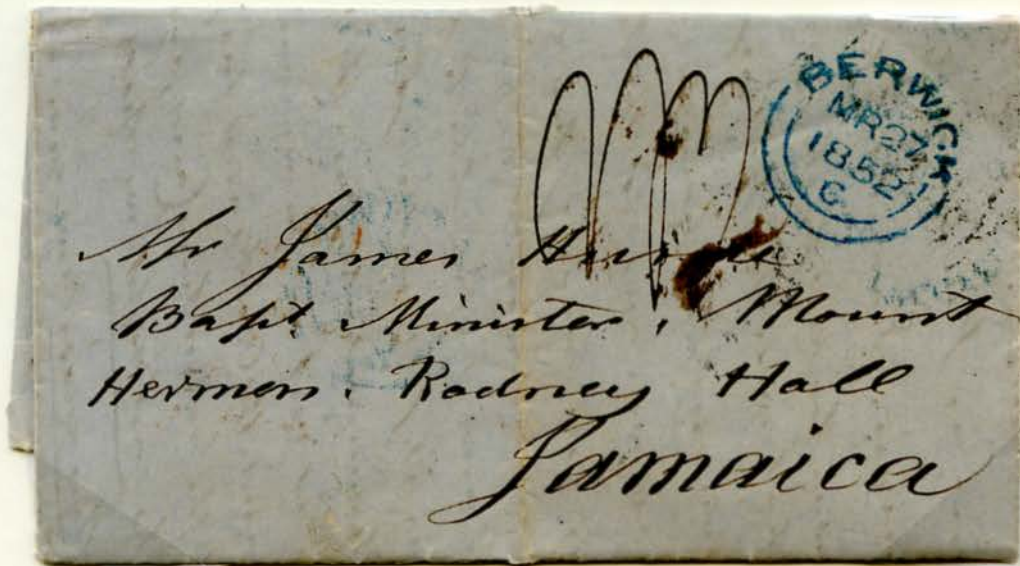 BERWICK
MR27
1852
C
Mr James
Bapt Minister, Mount
Hermon. Rodney Hall
Jamaica